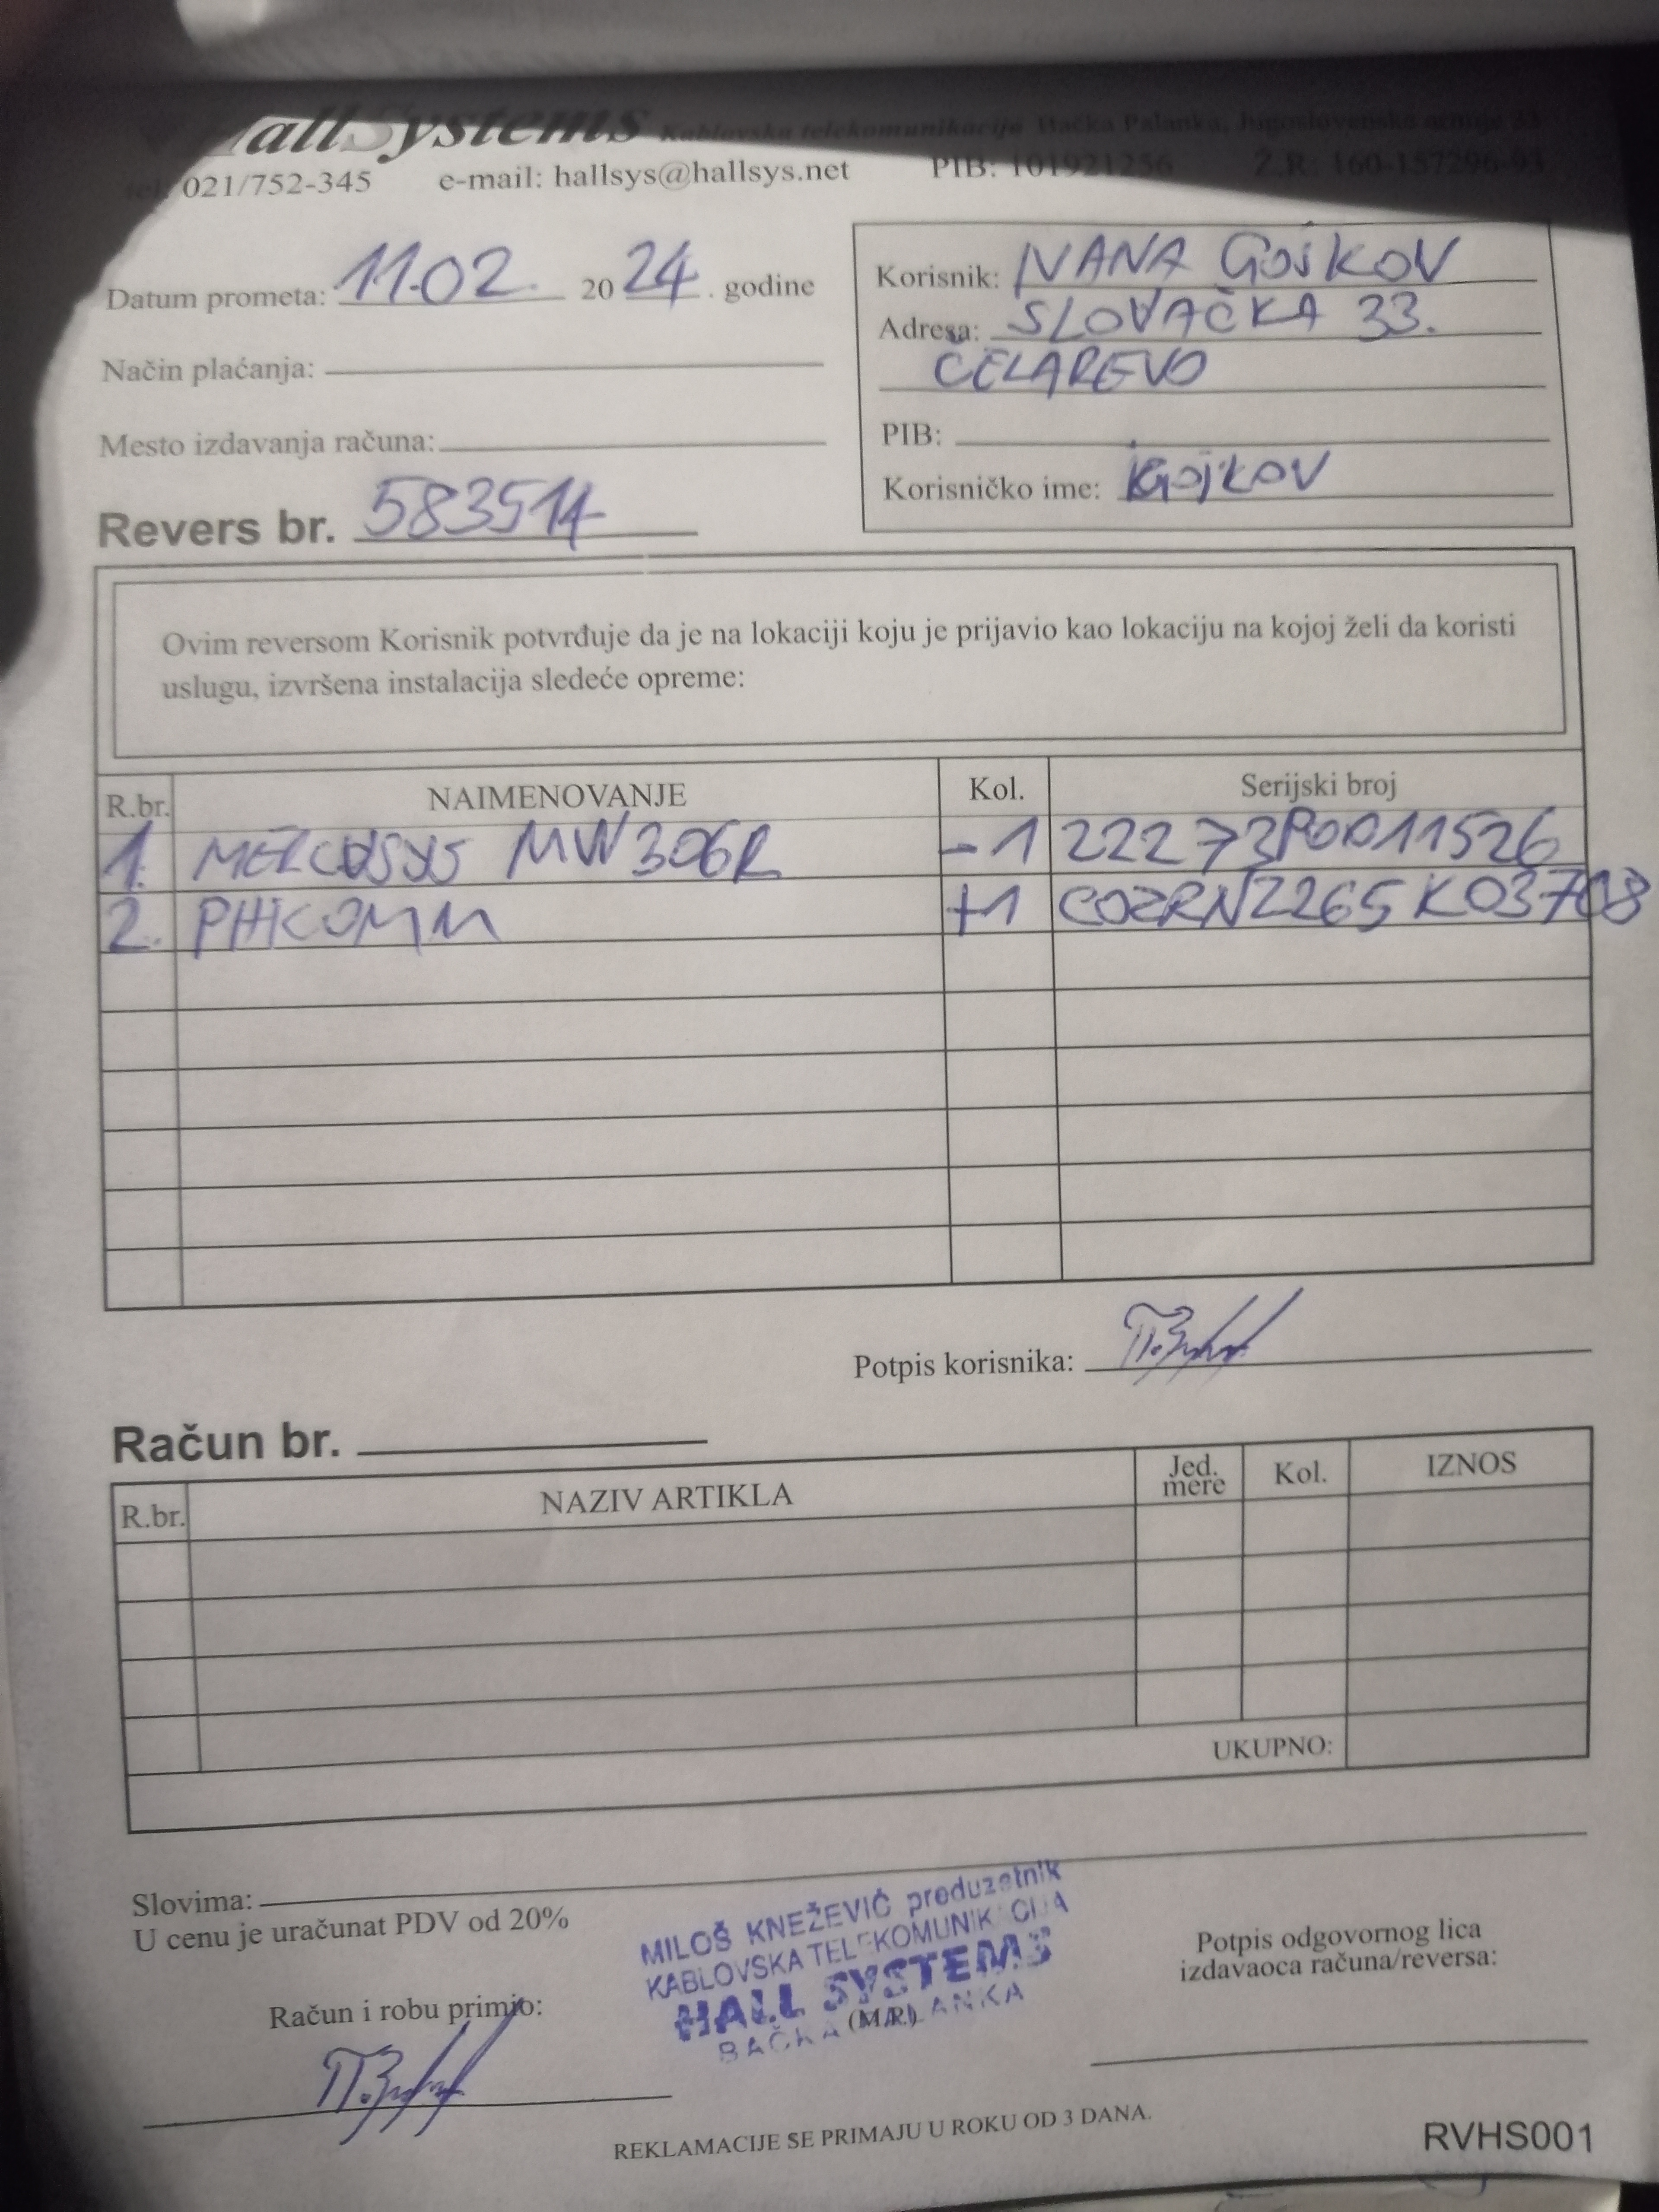 HallSystems Kablovska telekomunikacija Bačka Palanka, Jugoslovenske armije 33
tel: 021/752-345 e-mail: hallsys@hallsys.net PIB: 101921256 Ž.R: 160-157296-93
Datum prometa: 11.02. 2024. godine
Način plaćanja:
Mesto izdavanja računa:
Revers br. 583514
Korisnik: IVANA GOJKOV
Adresa: SLOVAČKA 33.
ČELAREVO
PIB:
Korisničko ime: iGojkov
Ovim reversom Korisnik potvrđuje da je na lokaciji koju je prijavio kao lokaciju na kojoj želi da koristi
uslugu, izvršena instalacija sledeće opreme:
R.br. NAIMENOVANJE Kol. Serijski broj
1. MERCUSYS MW306R -1 22273P0D11526
2. PHICOMM +1 COZRN2265K03708
Potpis korisnika:
Račun br.
R.br. NAZIV ARTIKLA Jed. mere Kol. IZNOS
UKUPNO:
Slovima:
U cenu je uračunat PDV od 20%
MILOŠ KNEŽEVIĆ preduzetnik
KABLOVSKA TELEKOMUNIKACIJA
HALL SYSTEMS
BAČKA PALANKA
(M.P.)
Račun i robu primio:
Potpis odgovornog lica
izdavaoca računa/reversa:
REKLAMACIJE SE PRIMAJU U ROKU OD 3 DANA.
RVHS001